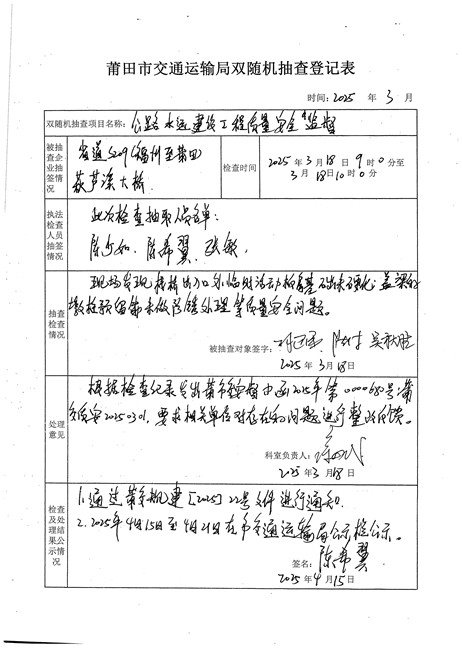 莆田市交通运输局双随机抽查登记表
时间:2025 年 3 月
双随机抽查项目名称:公路水运建设工程质量安全监督
被抽查企业抽签情况
省道S209(福州至莆田
荻芦溪大桥
检查时间
2025年3月18日9时0分至
3月18日10时0分
执法检查人员抽签情况
此次检查抽取人员名单:
陈希翼
抽查检查情况
现场发现栈桥出入口外临时活动
预留筋未做防锈处理等质量安全问题。
被抽查对象签字:
2025年3月18日
处理意见
根据检查记录发出莆市交 2025年第0000680号,莆
交质安20250301,要求相关单位对存在的问题进行整改反馈。
科室负责人:
2025年3月18日
检查及处理结果公示情况
1.通过莆交 建[2025]22号文件进行通知.
2.2025年4月15日至4月21日在市交通运输局公示栏公示。
签名:陈希翼
2025年4月15日